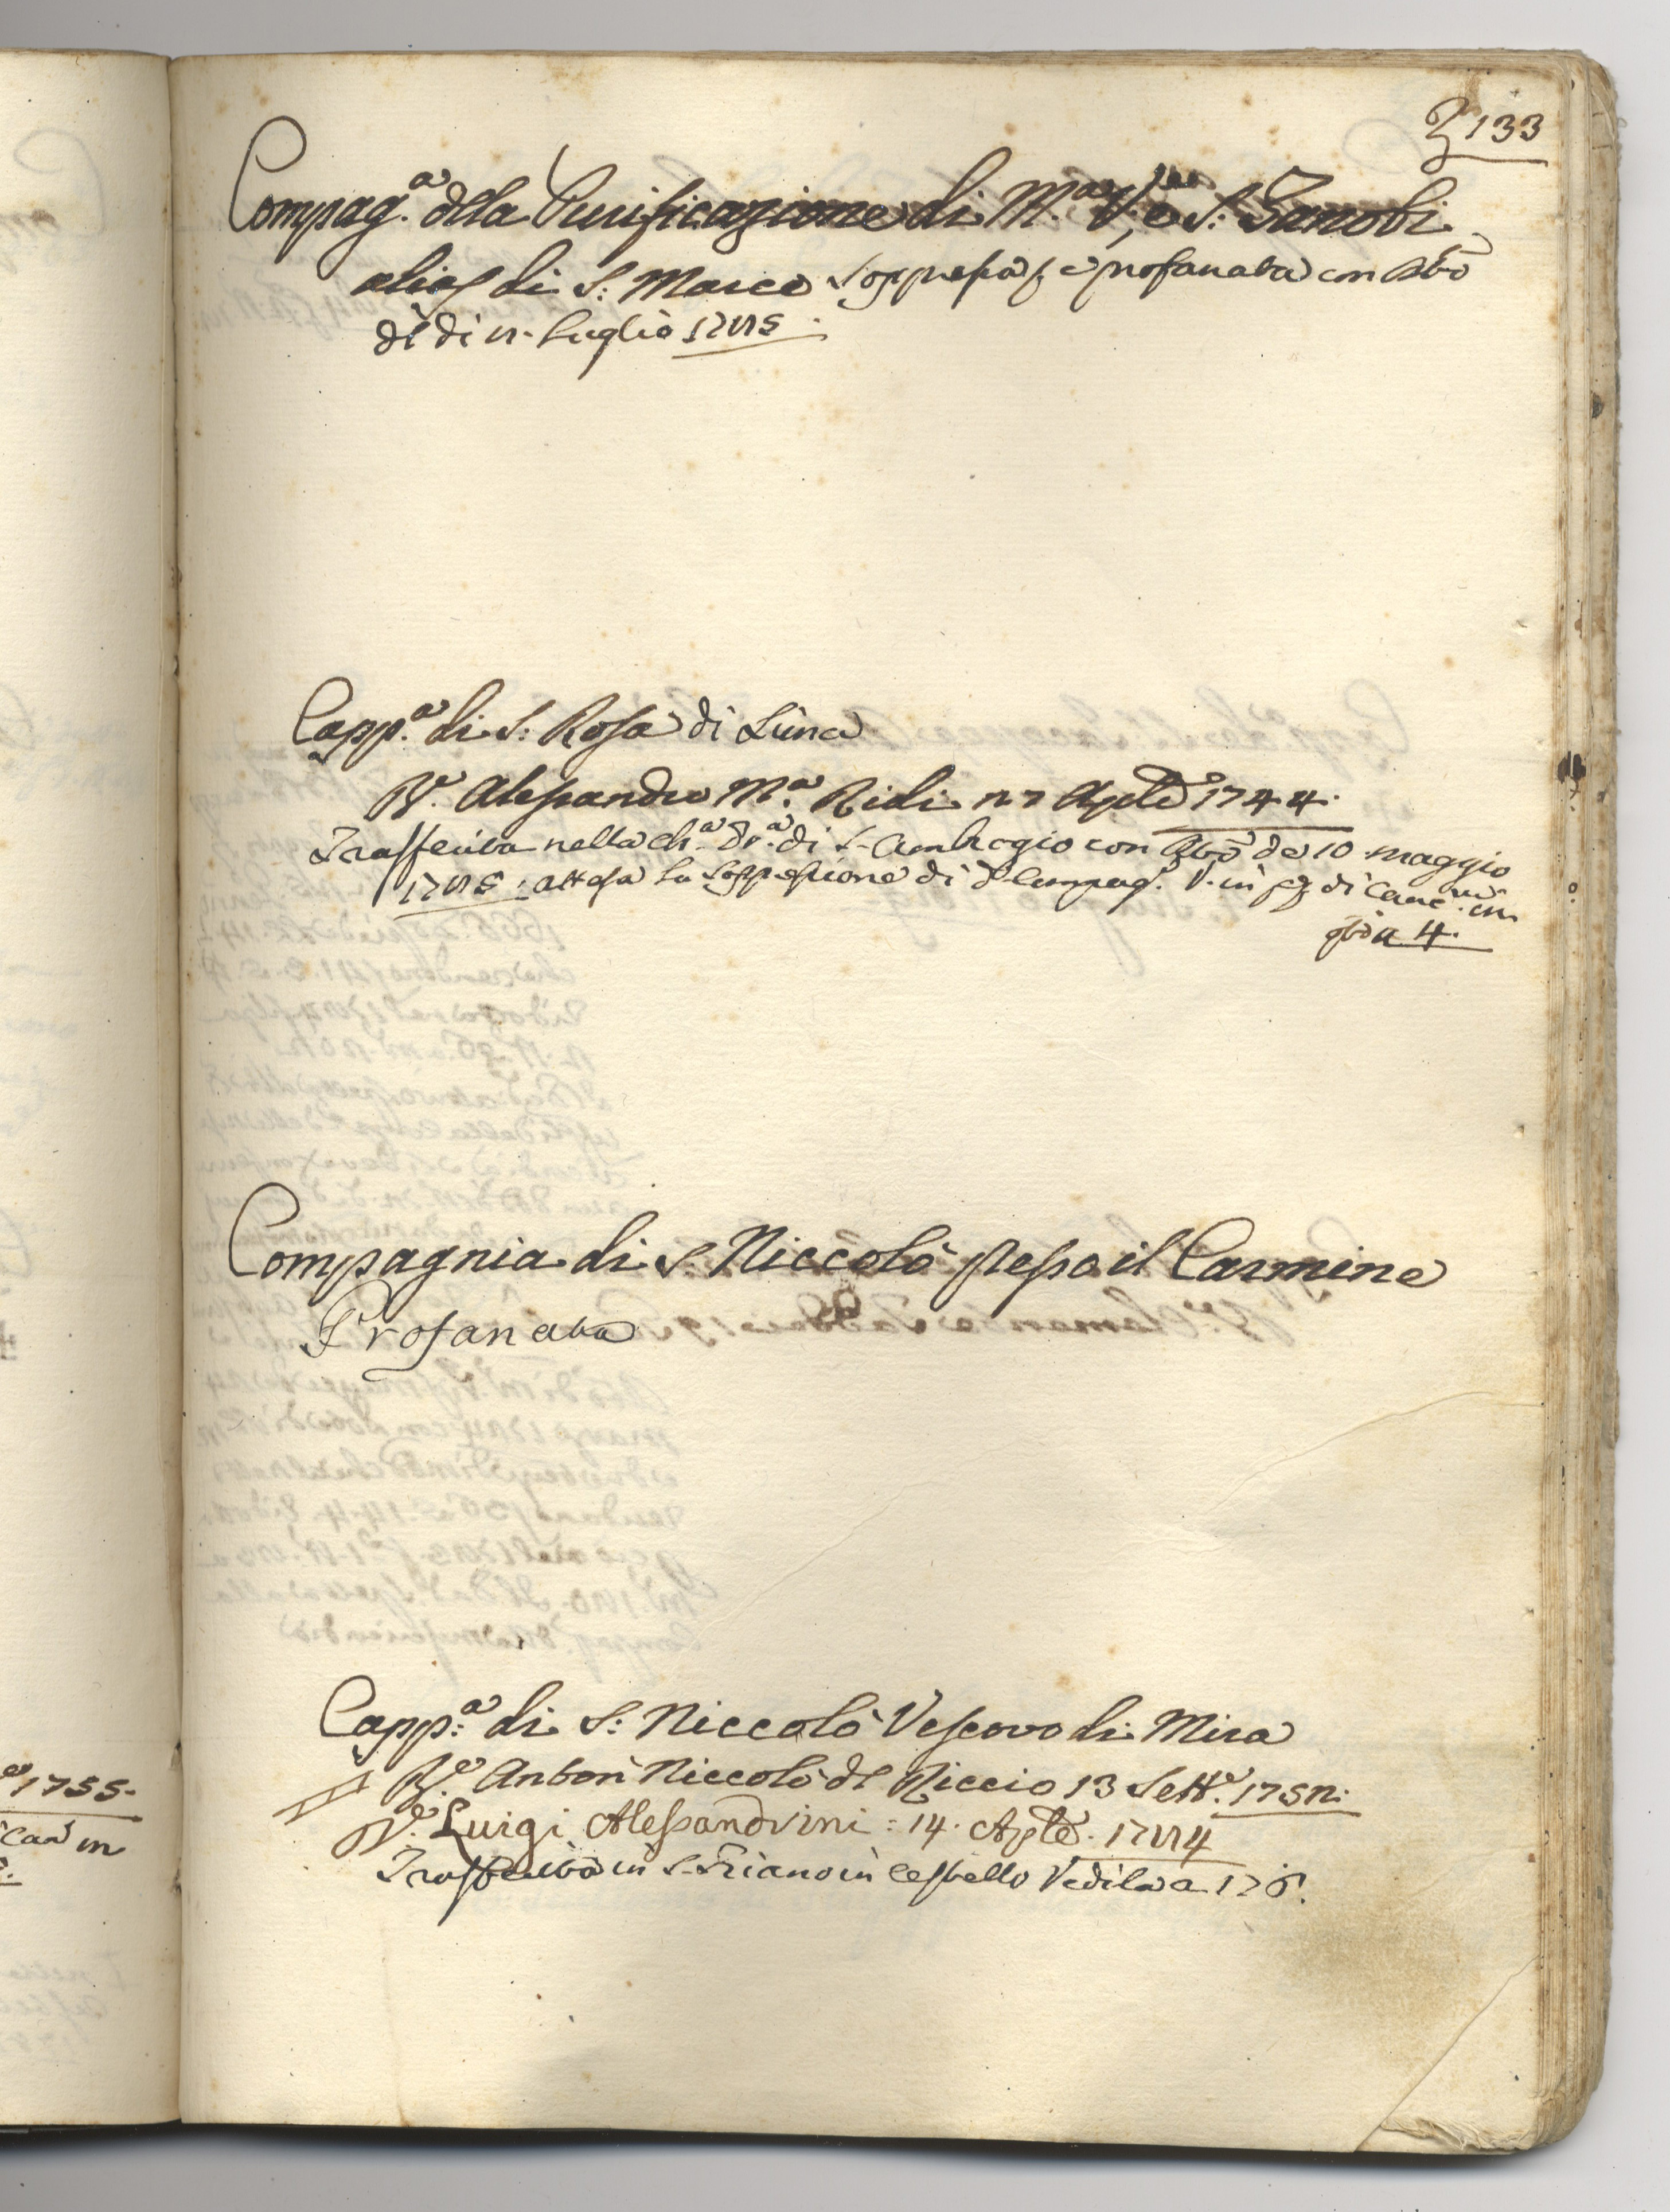 133
Compag.a della Purificazione di M.a V.e e S. Zanobi
alias di S. Marco Soppressa, e profanata con
di di Luglio 1785
Capp.a di S. Rosa di Lima
R.e Alessandro M.a Ridi 27 Aple 1744.
Trasferita nella ch.a di S. Ambrogio con de 10 maggio
1785. attesa la Soppressione di d. Compag. V. in di Canc. in
a 4.
Compagnia di S. Niccolò presso il Carmine
Profanata
Capp.a di S. Niccolò Vescovo di Mira
R.e Anton Niccolò del Riccio 13 Sett.e 1752.
R.e Luigi Alessandrini: 14. Aple. 1784
Trasferita in S. Friano in Cestello Vedila a 176.
e 1755.
can in